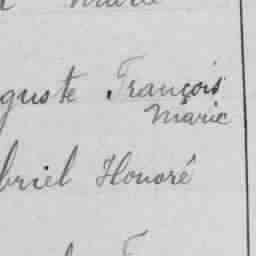 guste François
Marie
briel Honoré